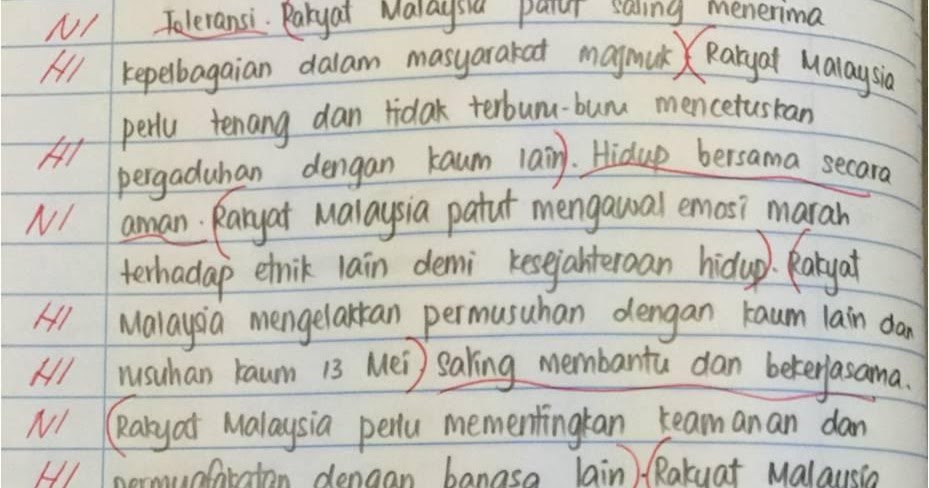 N1 Toleransi. Rakyat Malaysia patut saling menerima
H1 kepelbagaian dalam masyarakat majmuk) (Rakyat Malaysia
perlu tenang dan tidak terburu-buru mencetuskan
H1 pergaduhan dengan kaum lain). Hidup bersama secara
N1 aman. (Rakyat Malaysia patut mengawal emosi marah
terhadap etnik lain demi kesejahteraan hidup). (Rakyat
H1 Malaysia mengelakkan permusuhan dengan kaum lain dan
H1 rusuhan kaum 13 Mei) saling membantu dan bekerjasama.
N1 (Rakyat Malaysia perlu mementingkan keamanan dan
H1 permuafakatan dengan bangsa lain). (Rakyat Malaysia